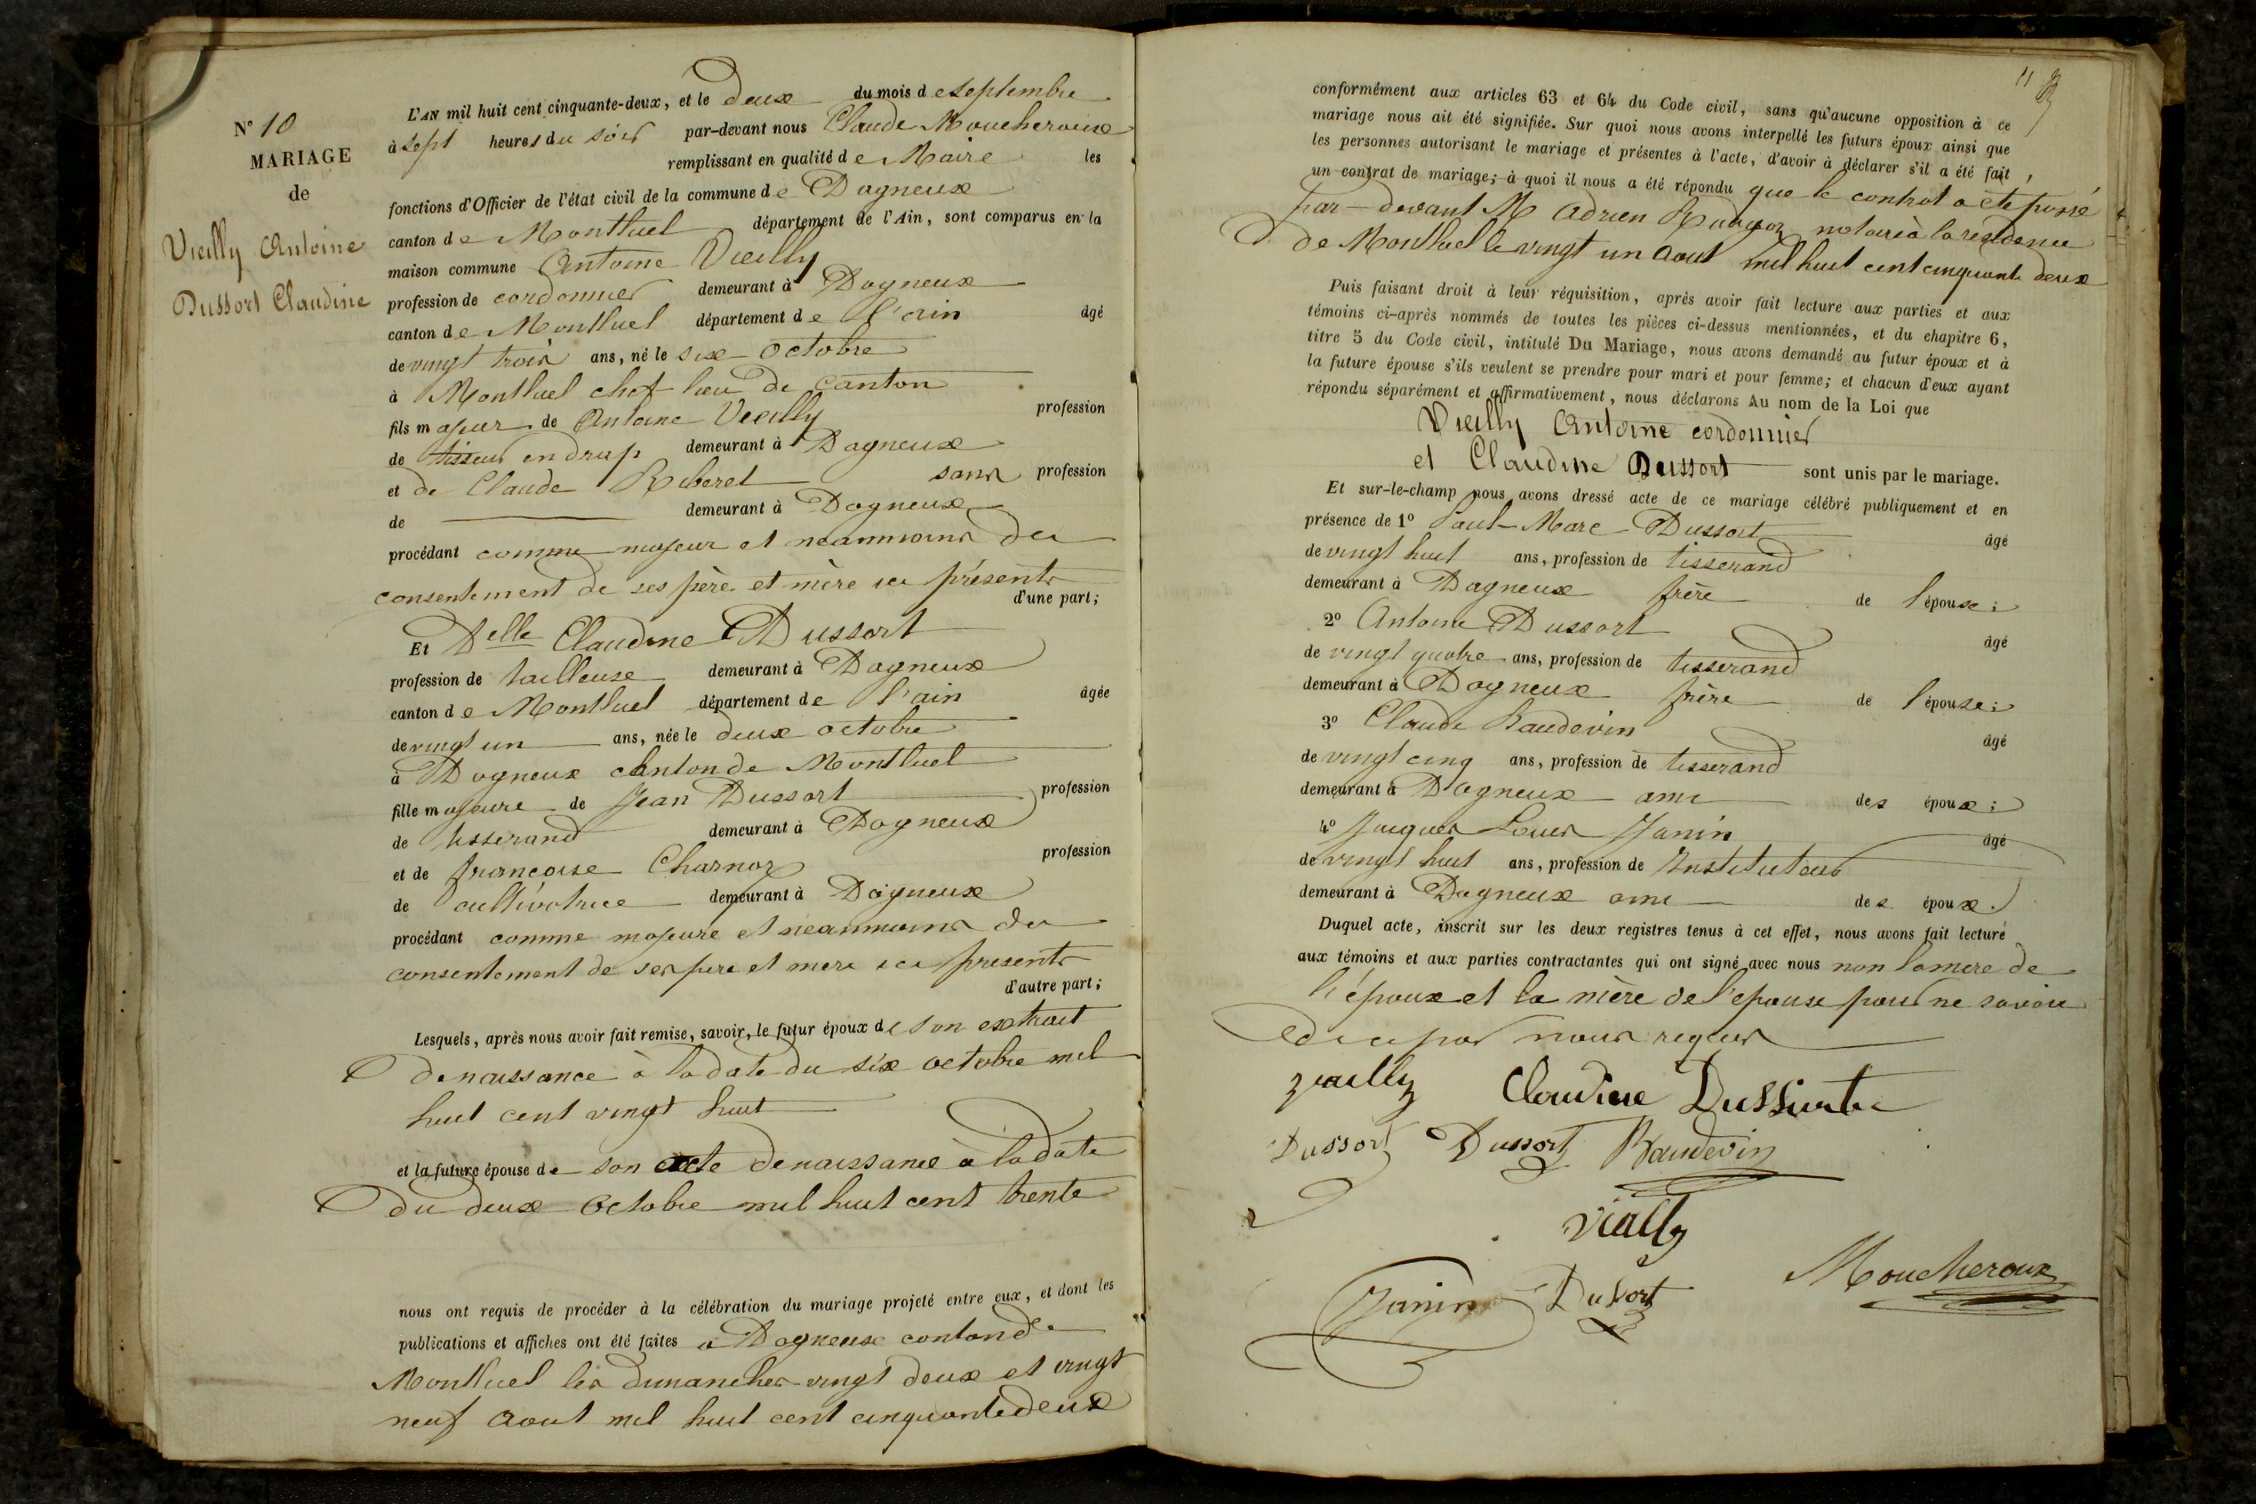 N° 10
MARIAGE
de
Vieilly Antoine
Dussort Claudine
L'AN mil huit cent cinquante-deux, et le deux du mois de septembre
à sept heures du soir par-devant nous Claude Moucheroux
remplissant en qualité de Maire les
fonctions d'Officier de l'état civil de la commune de Dagneux
canton de Montluel département de l'Ain, sont comparus en la
maison commune Antoine Vieilly
profession de cordonnier demeurant à Dagneux
canton de Montluel département de l'ain âgé
de vingt trois ans, né le six octobre
à Montluel chef lieu de canton
fils majeur de Antoine Vieilly profession
de tisseur en drap demeurant à Dagneux
et de Claude Riberet sans profession
de demeurant à Dagneux
procédant comme majeur et neanmoins du
consentement de ses père et mère ici présents
d'une part;
Et Delle Claudine Dussort
profession de tailleuse demeurant à Dagneux
canton de Montluel département de l'ain âgée
de vingt un ans, née le deux octobre
à Dagneux canton de Montluel
fille majeure de Jean Dussort profession
de tisserand demeurant à Dagneux
et de françoise Charnoz profession
de cultivatrice demeurant à Dagneux
procédant comme majeure et néanmoins du
consentement de ses pere et mere ici presents
d'autre part;
Lesquels, après nous avoir fait remise, savoir, le futur époux de son extrait
de naissance à la date du six octobre mil
huit cent vingt huit
et la future épouse de son acte de naissance à la date
du deux octobre mil huit cent trente
nous ont requis de procéder à la célébration du mariage projeté entre eux, et dont les
publications et affiches ont été faites à Dagneux canton de
Montluel les dimanches vingt deux et vingt
neuf aout mil huit cent cinquante deux
11
conformément aux articles 63 et 64 du Code civil, sans qu'aucune opposition à ce
mariage nous ait été signifiée. Sur quoi nous avons interpellé les futurs époux ainsi que
les personnes autorisant le mariage et présentes à l'acte, d'avoir à déclarer s'il a été fait
un contrat de mariage; à quoi il nous a été répondu que le contrat a été passé
par-devant M adrien notaire à la résidence
de Montluel le vingt un aout mil huit cent cinquante deux
Puis faisant droit à leur réquisition, après avoir fait lecture aux parties et aux
témoins ci-après nommés de toutes les pièces ci-dessus mentionnées, et du chapitre 6,
titre 5 du Code civil, intitulé Du Mariage, nous avons demandé au futur époux et à
la future épouse s'ils veulent se prendre pour mari et pour femme; et chacun d'eux ayant
répondu séparément et affirmativement, nous déclarons Au nom de la Loi que
Vieilly Antoine cordonnier
et Claudine Dussort sont unis par le mariage.
Et sur-le-champ nous avons dressé acte de ce mariage célébré publiquement et en
présence de 1° Paul Marc Dussort âgé
de vingt huit ans, profession de tisserand
demeurant à Dagneux frère de l'épouse;
2° Antoine Dussort âgé
de vingt quatre ans, profession de tisserand
demeurant à Dagneux frère de l'épouse;
3° Claude Baudevin âgé
de vingt cinq ans, profession de tisserand
demeurant à Dagneux ami des époux;
4° Jacques Louis Janin âgé
de vingt huit ans, profession de Instituteur
demeurant à Dagneux ami des époux.
Duquel acte, inscrit sur les deux registres tenus à cet effet, nous avons fait lecture
aux témoins et aux parties contractantes qui ont signé avec nous non la mere de
l'époux et la mère de l'epouse pour ne savoir
de ce par nous requis
vieilly Claudine Dussort
Dussort Dussort Baudevin
vially
Janin Dussort Moucheroux